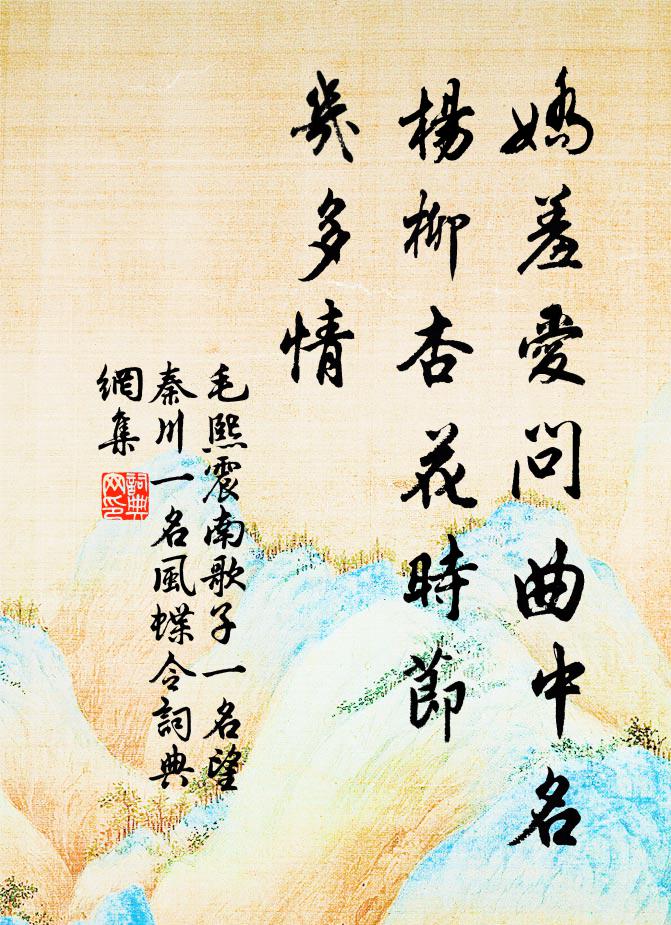 嬌羞愛問曲中名
楊柳杏花時節
幾多情
毛熙震南歌子一名望
秦川一名風蝶令詞典
網集
詞典
网印